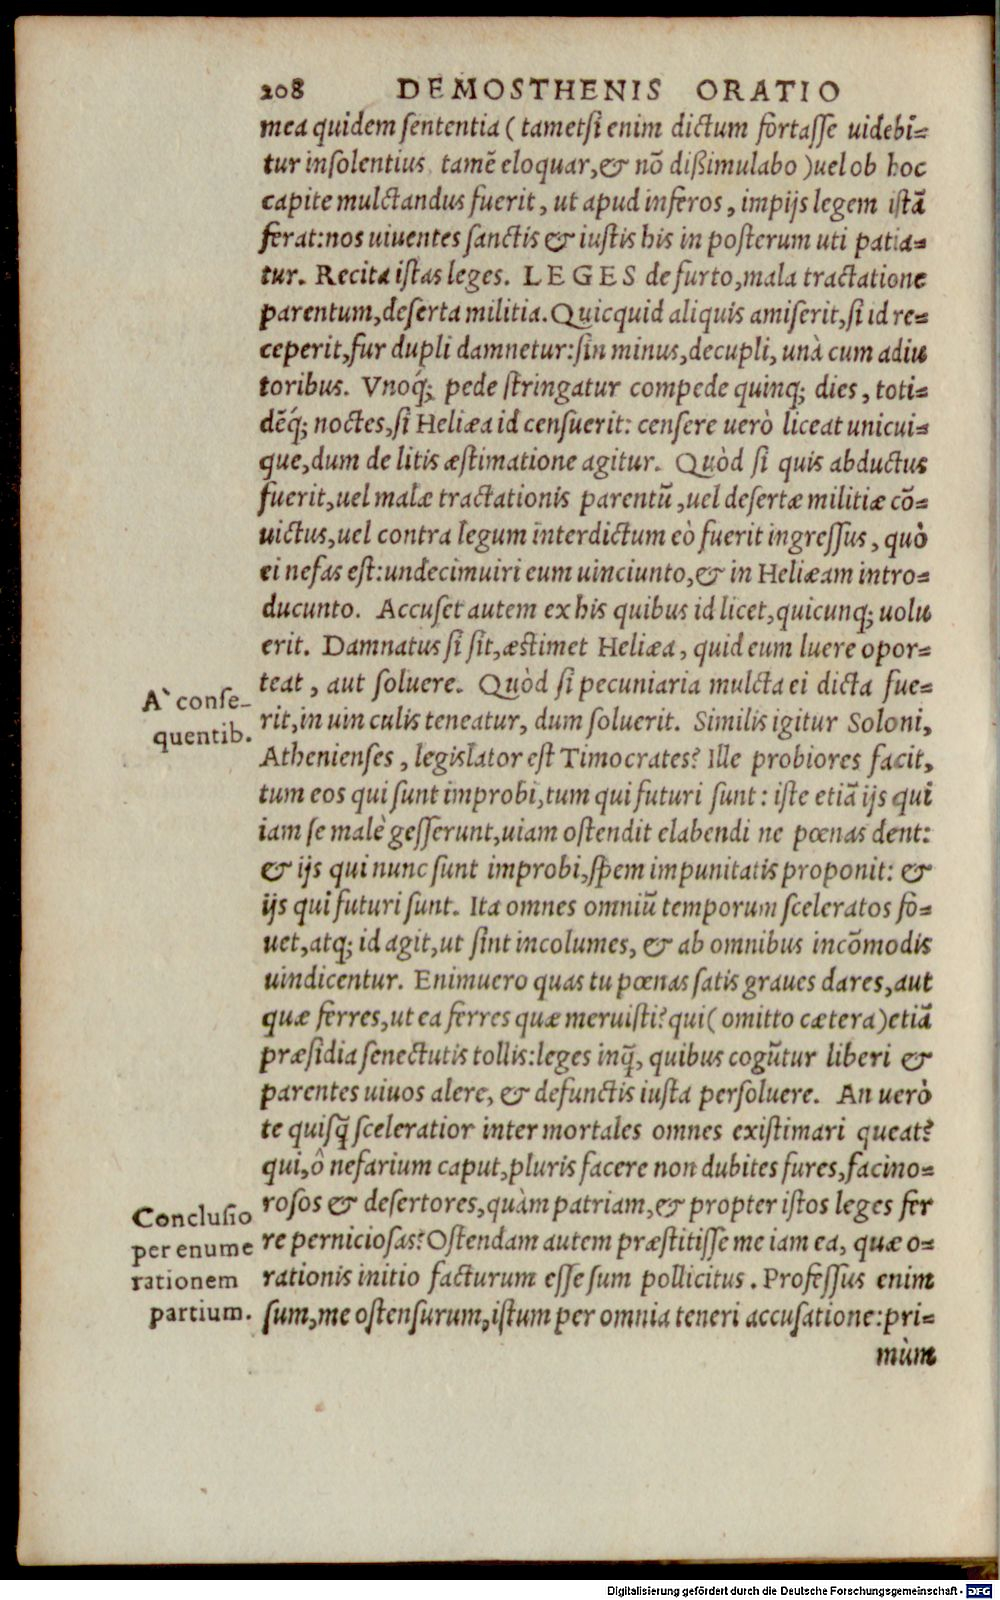 208 DEMOSTHENIS ORATIO
mea quidem sententia (tametsi enim dictum fortasse uidebi=
tur insolentius, tamẽ eloquar, & nõ dißimulabo) uel ob hoc
capite mulctandus fuerit, ut apud inferos, impijs legem istã
ferat: nos uiuentes sanctis & iustis his in posterum uti patia=
tur. Recita istas leges. LEGES de furto, mala tractatione
parentum, deserta militia. Quicquid aliquis amiserit, si id re=
ceperit, fur dupli damnetur: sin minus, decupli, unà cum adiu
toribus. Vnoq́; pede stringatur compede quinq; dies, toti=
dẽq́; noctes, si Heliæa id censuerit: censere uerò liceat unicui=
que, dum de litis æstimatione agitur. Quòd si quis abductus
fuerit, uel malæ tractationis parentũ, uel desertæ militiæ cõ=
uictus, uel contra legum interdictum eò fuerit ingressus, quò
ei nefas est: undecimuiri eum uinciunto, & in Heliæam intro=
ducunto. Accuset autem ex his quibus id licet, quicunq; uolu
erit. Damnatus si sit, æstimet Heliæa, quid eum luere opor=
teat, aut soluere. Quòd si pecuniaria mulcta ei dicta fue=
A` conse-
quentib.
rit, in uin culis teneatur, dum soluerit. Similis igitur Soloni,
Athenienses, legislator est Timocrates? Ille probiores facit,
tum eos qui sunt improbi, tum qui futuri sunt: iste etiã ijs qui
iam se malè gesserunt, uiam ostendit elabendi ne pœnas dent:
& ijs qui nunc sunt improbi, spem impunitatis proponit: &
ijs qui futuri sunt. Ita omnes omniũ temporum sceleratos fo=
uet, atq; id agit, ut sint incolumes, & ab omnibus incõmodis
uindicentur. Enimuero quas tu pœnas satis graues dares, aut
quæ ferres, ut ea ferres quæ meruisti? qui (omitto cætera) etiã
præsidia senectutis tollis: leges inq̃, quibus cogũtur liberi &
parentes uiuos alere, & defunctis iusta persoluere. An uerò
te quisq̃ sceleratior inter mortales omnes existimari queat?
qui, ô nefarium caput, pluris facere non dubites fures, facino=
rosos & desertores, quàm patriam, & propter istos leges fer
Conclusio
per enume
rationem
partium.
re perniciosas? Ostendam autem præstitisse me iam ea, quæ o=
rationis initio facturum esse sum pollicitus. Professus enim
sum, me ostensurum, istum per omnia teneri accusatione: pri=
mùm
Digitalisierung gefördert durch die Deutsche Forschungsgemeinschaft - DFG